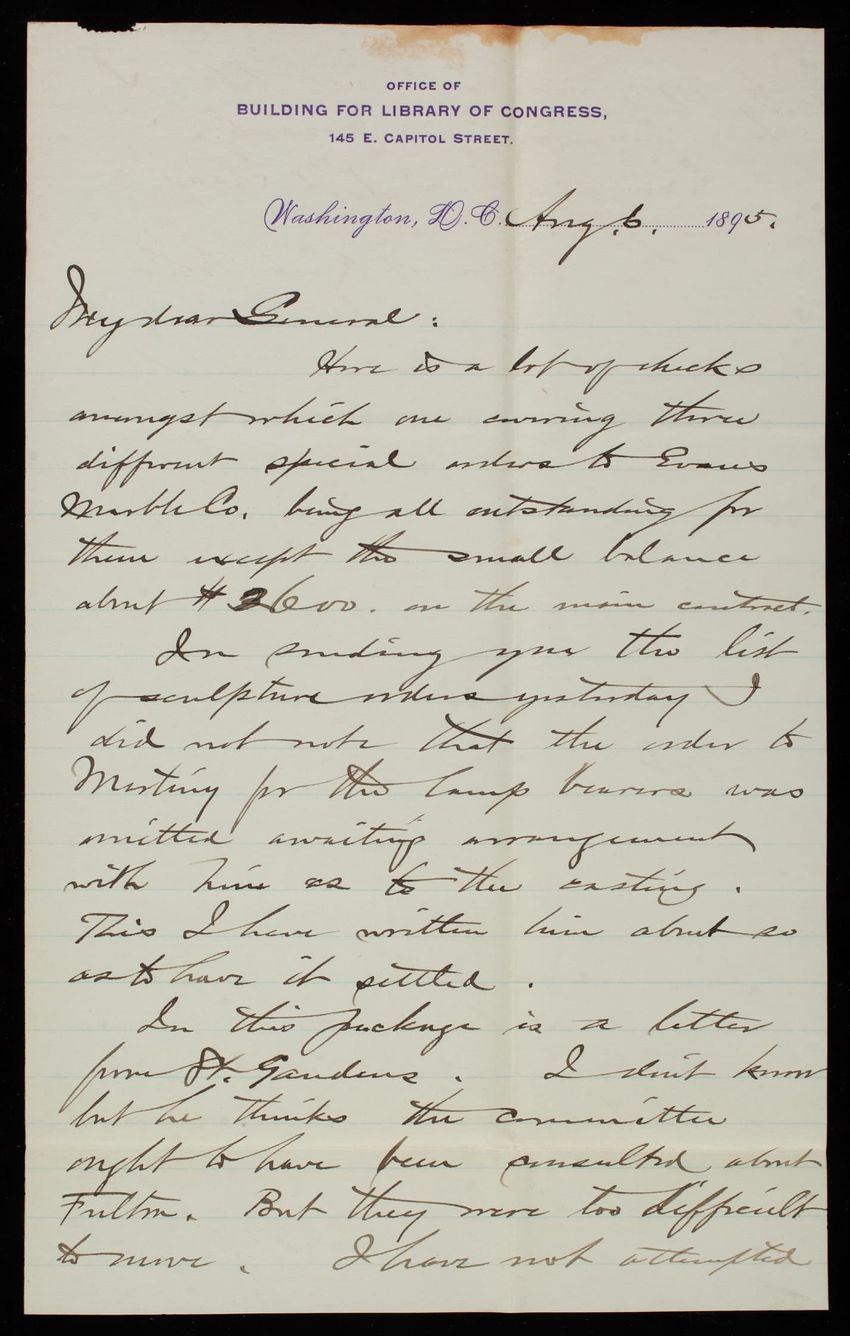 OFFICE OF
BUILDING FOR LIBRARY OF CONGRESS,
145 E. CAPITOL STREET.
Washington, D.C. Aug. 6. 1895.
My dear General:
Here is a lot of checks
amongst which one covering three
different special orders to Evans
Marble Co. being all outstanding for
them except the small balance
about $3600. on the main contract.
In sending you the list
of sculpture orders yesterday I
did not note that the order to
Martiny for the lamp bearers was
omitted awaiting arrangement
with him as to the casting.
This I have written him about so
as to have it settled.
In this package is a letter
from St. Gaudens. I don't know
but he thinks the committee
ought to have been consulted about
Fulton. But they were too difficult
to move. I have not attempted